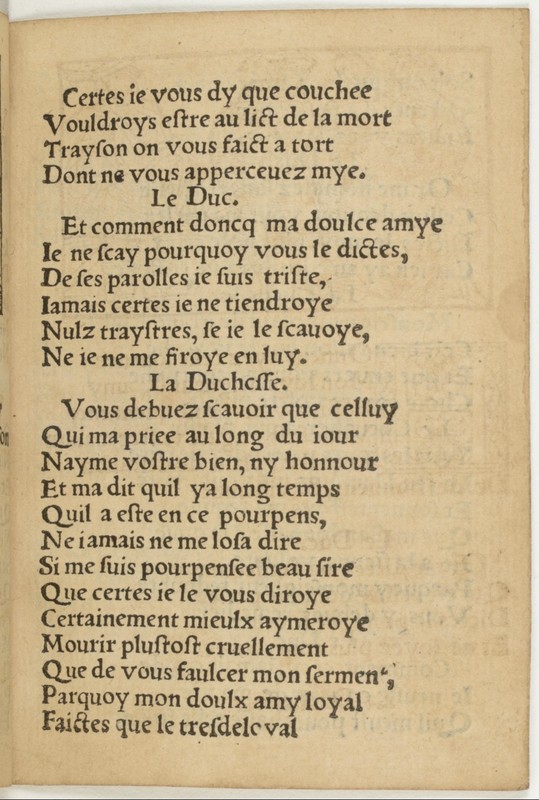 Certes ie vous dy que couchee
Vouldroys eſtre au lict de la mort
Trayſon on vous faict a tort
Dont ne vous apperceuez mye.
Le Duc.
Et comment doncq ma doulce amye
Ie ne ſcay pourquoy vous le dictes,
De ſes parolles ie ſuis triſte,
Iamais certes ie ne tiendroye
Nulz trayſtres, ſe ie le ſcauoye,
Ne ie ne me firoye en luy.
La Ducheſſe.
Vous debuez ſcauoir que celluy
Qui ma priee au long du iour
Nayme voſtre bien, ny honnour
Et ma dit quil ya long temps
Quil a eſte en ce pourpens,
Ne iamais ne me loſa dire
Si me ſuis pourpenſee beau ſire
Que certes ie le vous diroye
Certainement mieulx aymeroye
Mourir pluſtoſt cruellement
Que de vous faulcer mon ſerment,
Parquoy mon doulx amy loyal
Faictes que le treſdeloyal